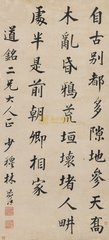 自古别都多隙地參天喬
木亂昏鴉荒垣壞堵人畊
處半是前朝卿相家
道銘二兄大人正 少穆林則徐